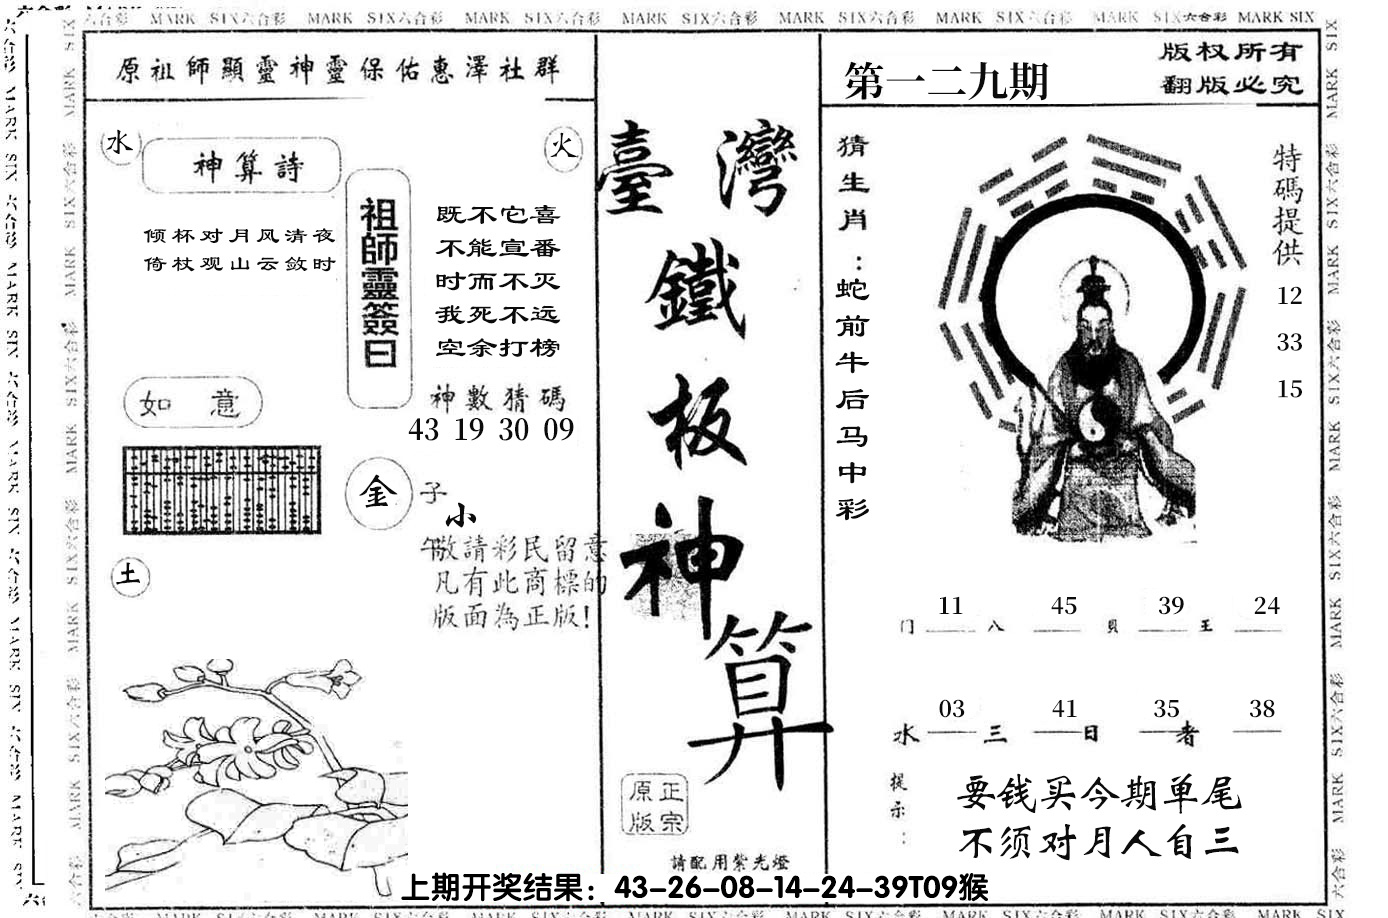 MARK SIX六合彩 MARK SIX六合彩 MARK SIX六合彩 MARK SIX六合彩 MARK SIX六合彩 MARK SIX六合彩 MARK SIX六合彩 MARK SIX
原祖師顯靈神靈保佑惠澤社群
水
神算詩
火
倾杯对月风清夜
倚杖观山云敛时
祖師靈簽曰
既不它喜
不能宣番
时而不灭
我死不远
空余打榜
如 意
神數猜碼
43 19 30 09
金
子
小
午
敬請彩民留意
凡有此商標的
版面為正版!
土
臺灣
鐵
板
神
算
正宗
原版
請配用紫光燈
第一二九期
版权所有
翻版必究
猜生肖:蛇前牛后马中彩
特碼提供
12
33
15
11 45 39 24
门 八 貝 王
03 41 35 38
水 三 日 者
提示:
要钱买今期单尾
不须对月人自三
上期开奖结果：43-26-08-14-24-39T09猴